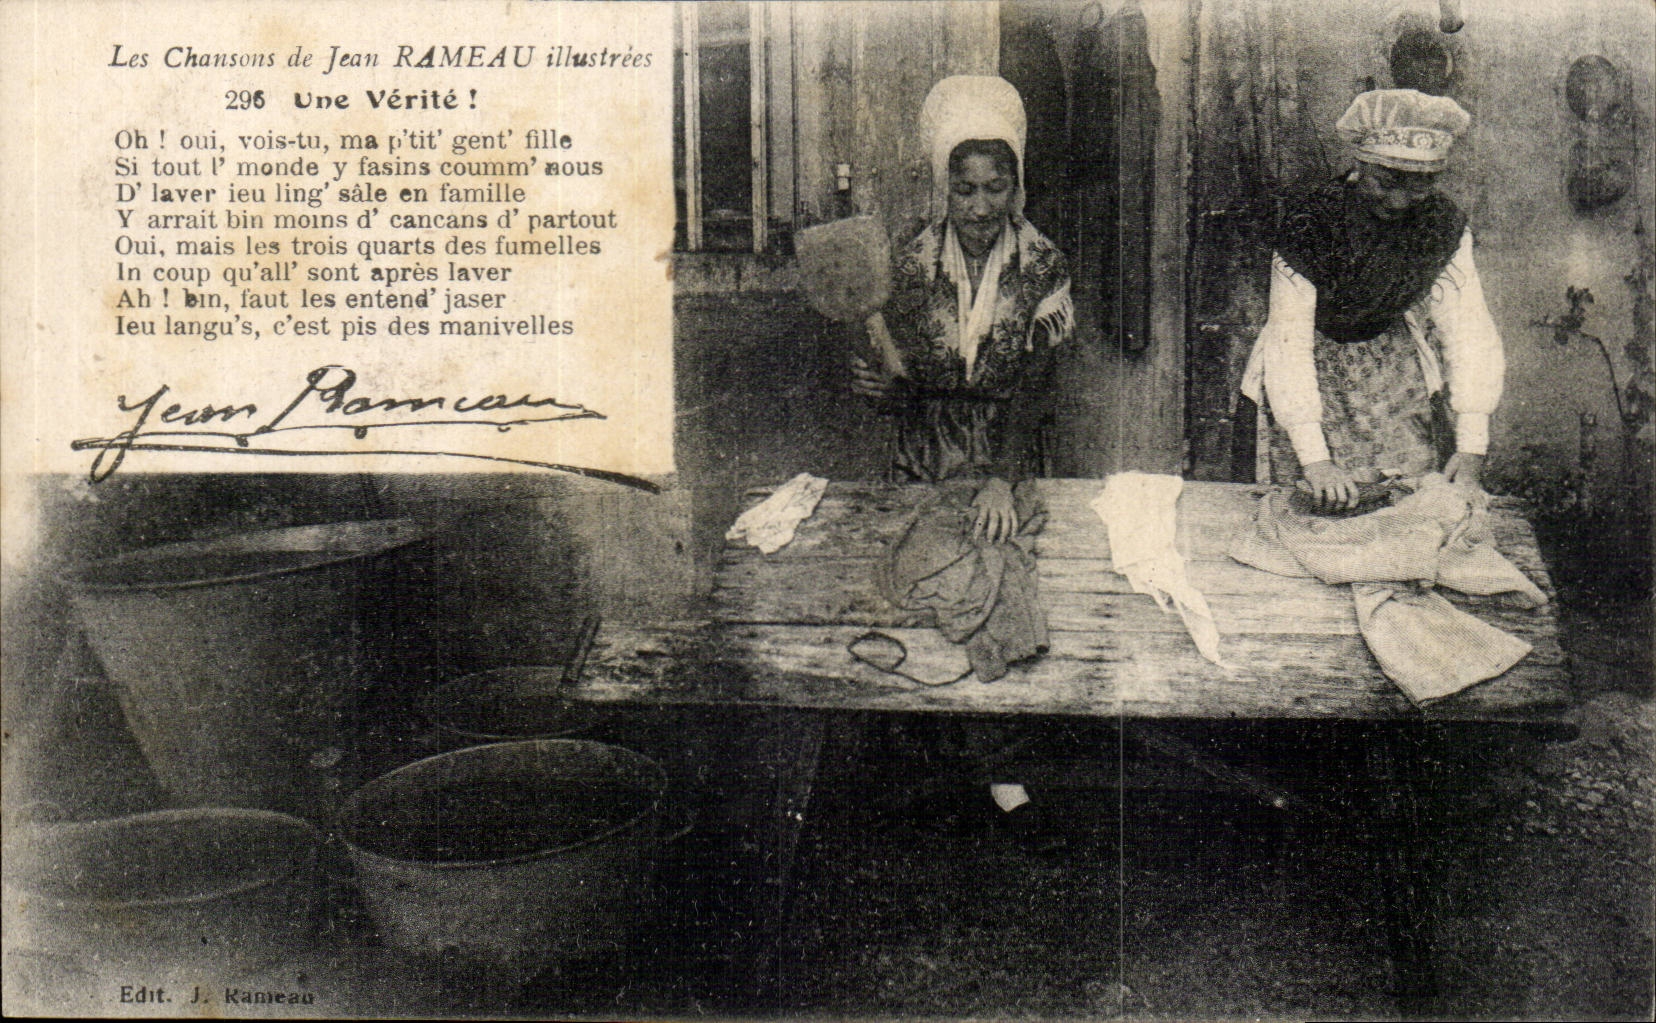 Les Chansons de Jean RAMEAU illustrées
296 Une Vérité !
Oh ! oui, vois-tu, ma p'tit' gent' fille
Si tout l' monde y fasins coumm' nous
D' laver ieu ling' sâle en famille
Y arrait bin moins d' cancans d' partout
Oui, mais les trois quarts des fumelles
In coup qu'all' sont après laver
Ah ! bin, faut les entend' jaser
Ieu langu's, c'est pis des manivelles
Jean Rameau
Edit. J. Rameau